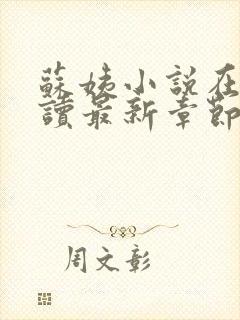 蘇姨小說在
讀最新章節
周文彰